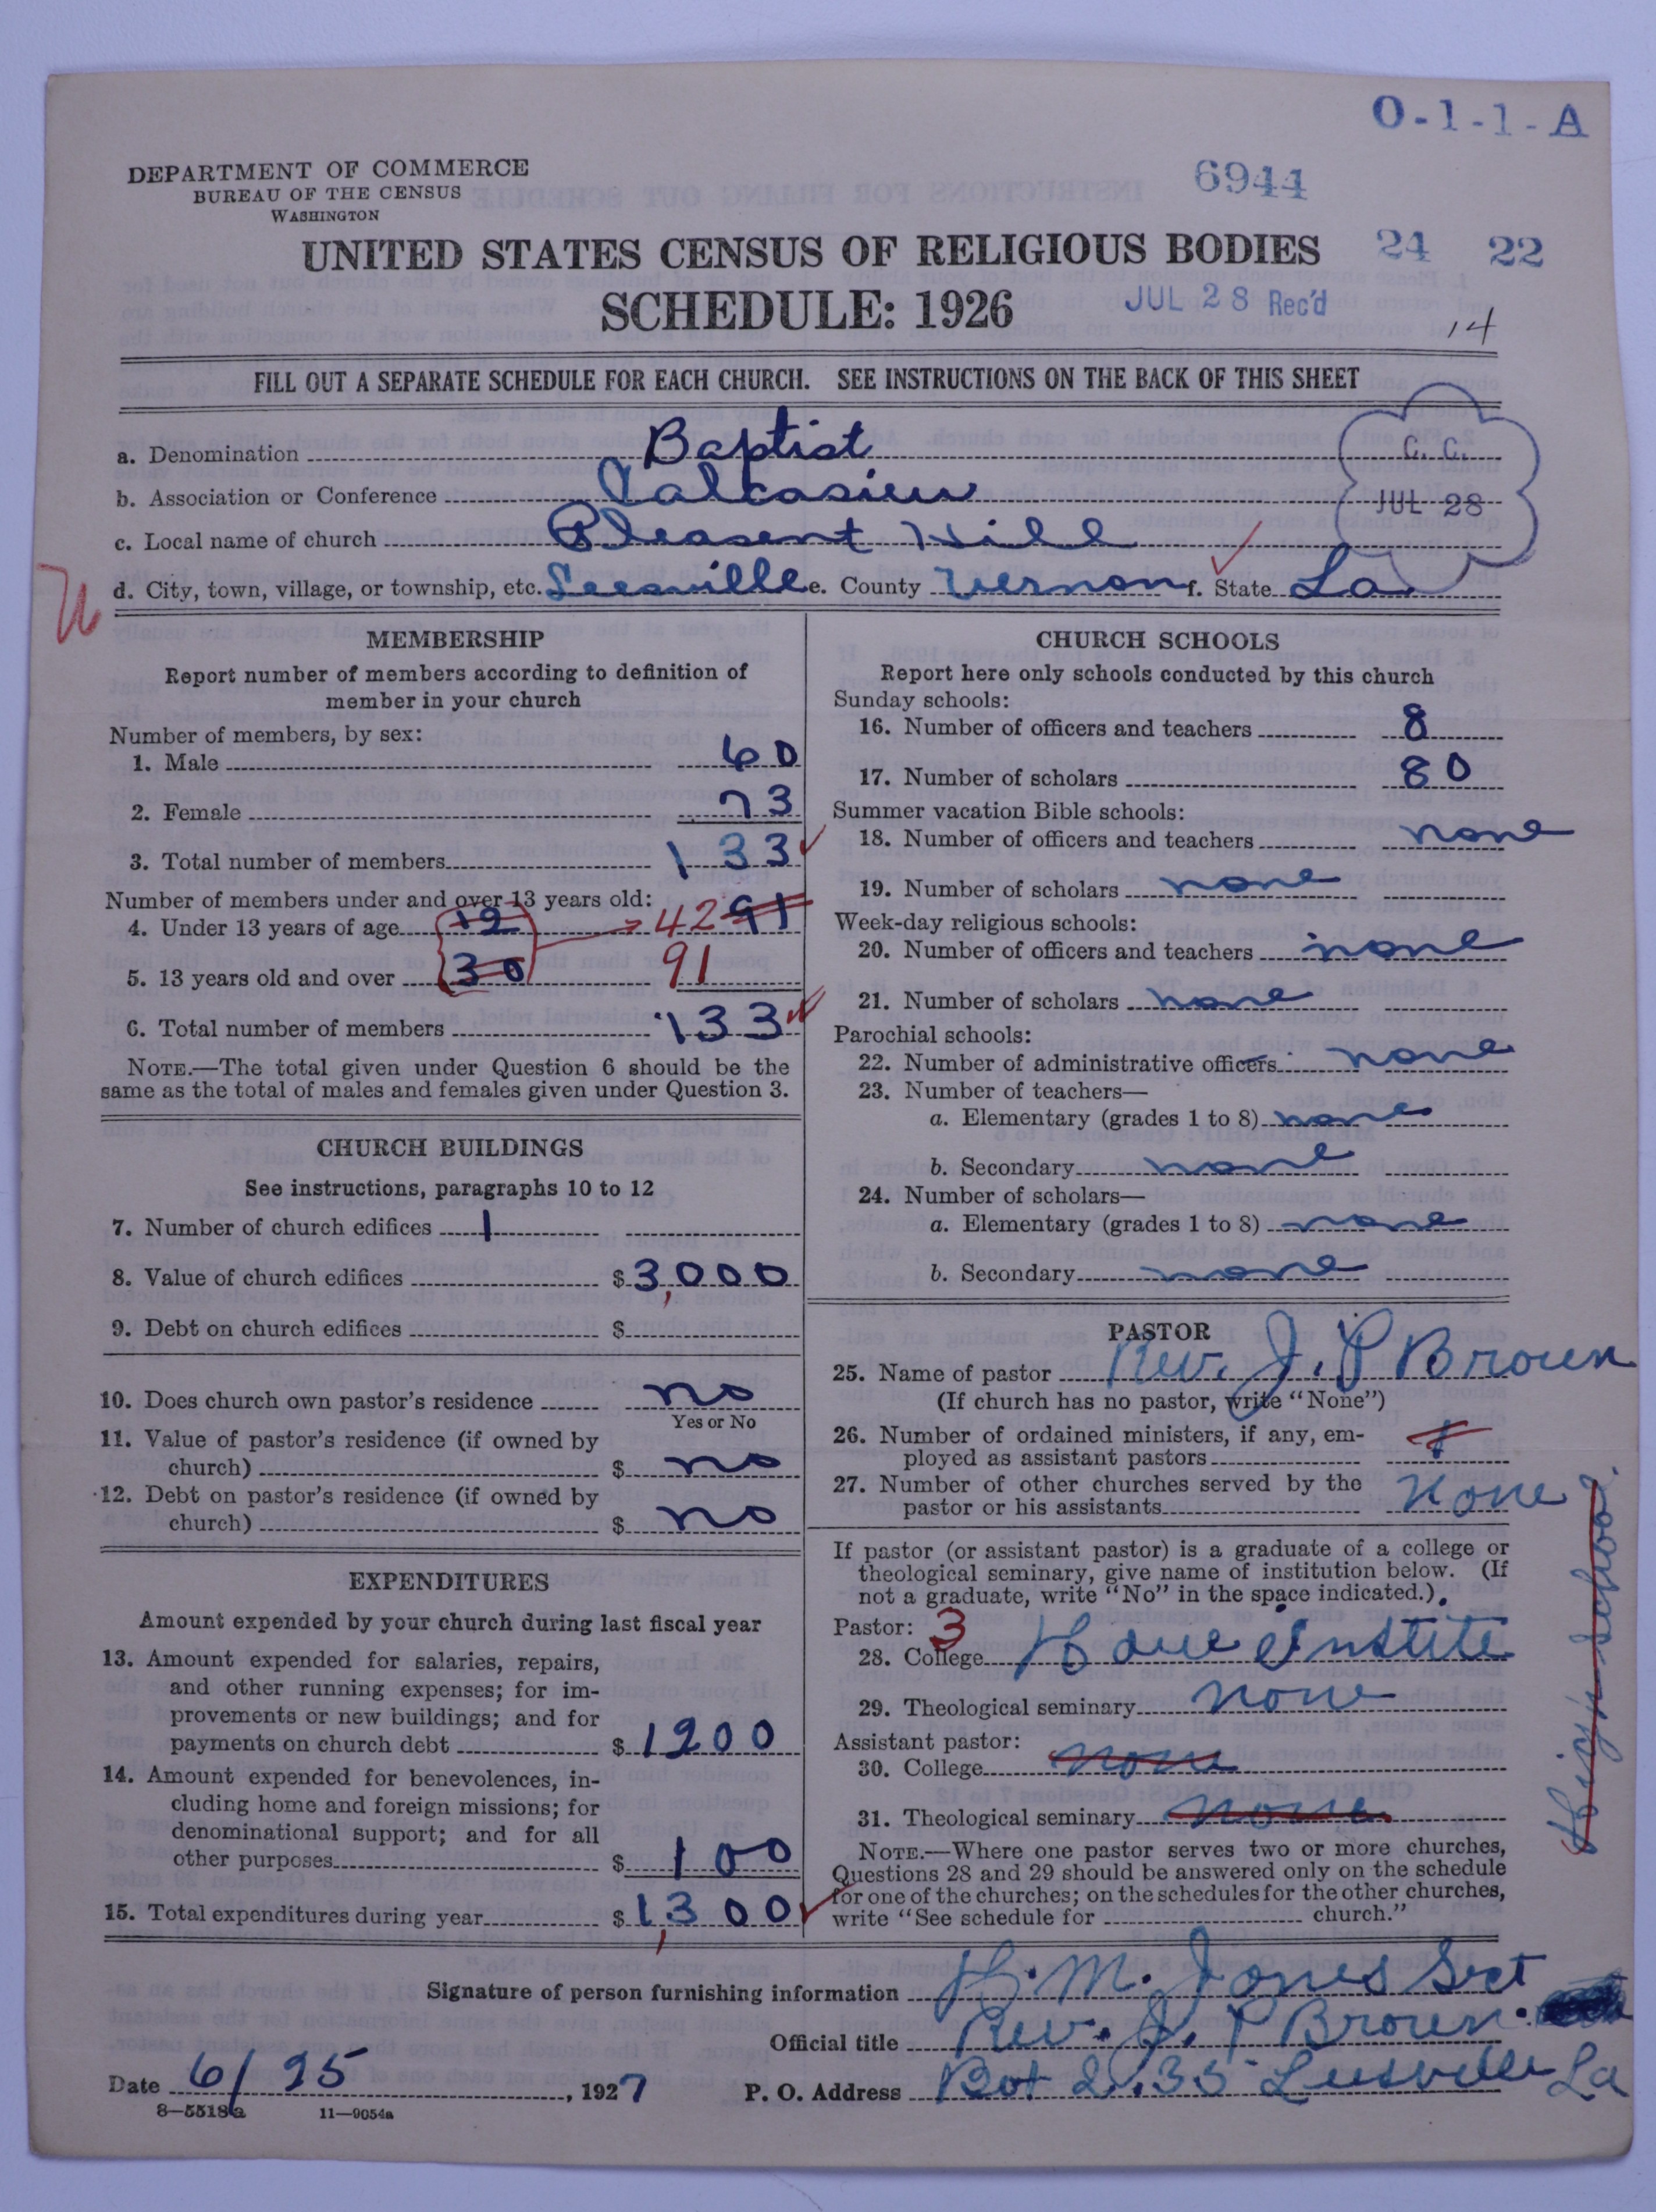 O-1-1-A
DEPARTMENT OF COMMERCE
BUREAU OF THE CENSUS
WASHINGTON
6944
UNITED STATES CENSUS OF RELIGIOUS BODIES
24 22
SCHEDULE: 1926
JUL 28 Rec'd
14
FILL OUT A SEPARATE SCHEDULE FOR EACH CHURCH. SEE INSTRUCTIONS ON THE BACK OF THIS SHEET
a. Denomination Baptist
C. C.
JUL 28
b. Association or Conference Calcasieu
c. Local name of church Pleasent Hill
d. City, town, village, or township, etc. Leesville e. County Vernon f. State La
MEMBERSHIP
Report number of members according to definition of
member in your church
Number of members, by sex:
1. Male 60
2. Female 73
3. Total number of members 133
Number of members under and over 13 years old:
4. Under 13 years of age 12 42 91
5. 13 years old and over 30 91
6. Total number of members 133
NOTE.—The total given under Question 6 should be the
same as the total of males and females given under Question 3.
CHURCH BUILDINGS
See instructions, paragraphs 10 to 12
7. Number of church edifices 1
8. Value of church edifices $ 3,000
9. Debt on church edifices $
10. Does church own pastor's residence no
Yes or No
11. Value of pastor's residence (if owned by
church) $ no
12. Debt on pastor's residence (if owned by
church) $ no
EXPENDITURES
Amount expended by your church during last fiscal year
13. Amount expended for salaries, repairs,
and other running expenses; for im-
provements or new buildings; and for
payments on church debt $ 1200
14. Amount expended for benevolences, in-
cluding home and foreign missions; for
denominational support; and for all
other purposes $ 100
15. Total expenditures during year $ 1,300
CHURCH SCHOOLS
Report here only schools conducted by this church
Sunday schools:
16. Number of officers and teachers 8
17. Number of scholars 80
Summer vacation Bible schools:
18. Number of officers and teachers none
19. Number of scholars none
Week-day religious schools:
20. Number of officers and teachers none
21. Number of scholars none
Parochial schools:
22. Number of administrative officers none
23. Number of teachers—
a. Elementary (grades 1 to 8) none
b. Secondary none
24. Number of scholars—
a. Elementary (grades 1 to 8) none
b. Secondary none
PASTOR
25. Name of pastor Rev. J. P Brown
(If church has no pastor, write "None")
26. Number of ordained ministers, if any, em-
ployed as assistant pastors
27. Number of other churches served by the
pastor or his assistants none
If pastor (or assistant pastor) is a graduate of a college or
theological seminary, give name of institution below. (If
not a graduate, write "No" in the space indicated.)
Pastor: 3
28. College Howe Institite
29. Theological seminary none
Assistant pastor:
30. College none
31. Theological seminary none
NOTE.—Where one pastor serves two or more churches,
Questions 28 and 29 should be answered only on the schedule
for one of the churches; on the schedules for the other churches,
write "See schedule for church."
school
Signature of person furnishing information H. M. Jones Sect
Official title Rev. J. P Brown
Date 6/25, 1927 P. O. Address Box 235 Leesville La
8—5518a 11—9054a